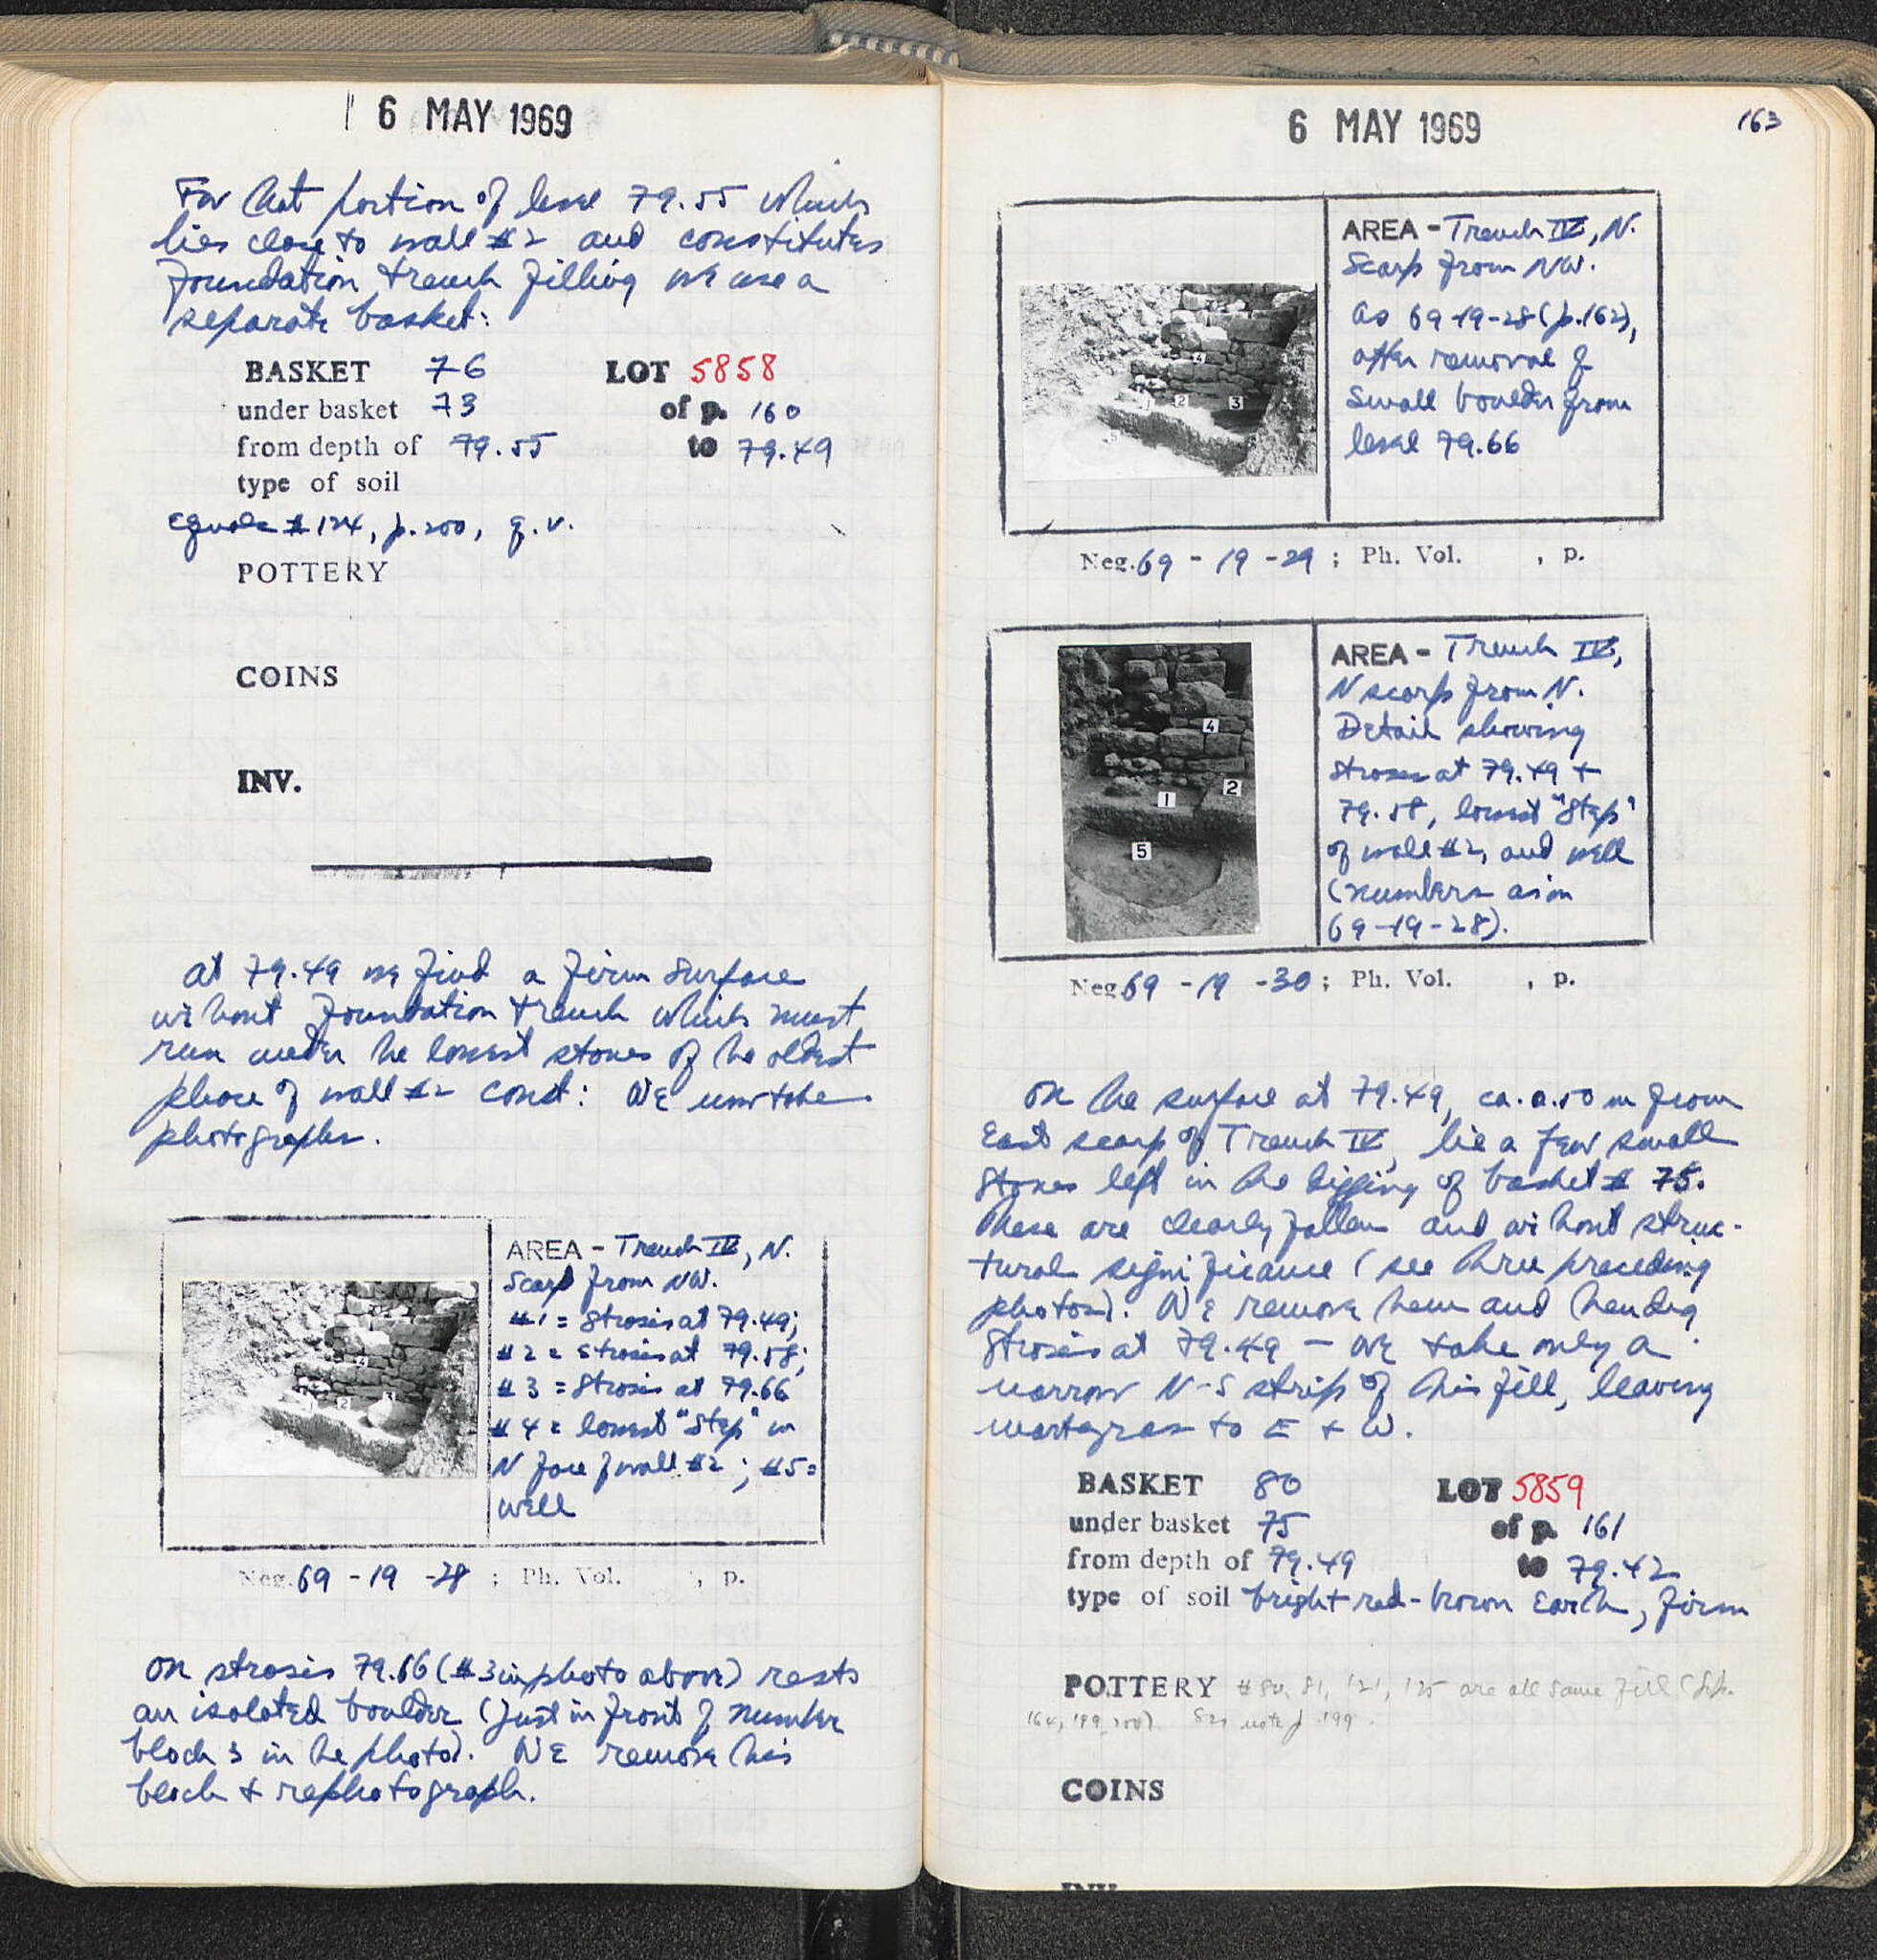 6 MAY 1969
For that portion of level 79.55 which
lies close to wall #2 and constitutes
foundation trench filling we use a
separate basket:
BASKET 76 LOT 5858
under basket 73 of p. 160
from depth of 79.55 to 79.49
type of soil
equals #124, p.200, q.v.
POTTERY
COINS
INV.
At 79.49 we find a firm surface
without foundation trench which must
run under the lowest stones of the oldest
phase of wall #2 const: We now take
photographs.
AREA - Trench IV, N.
Scarp from NW.
#1 = Strosis at 79.49;
#2 = strosis at 79.58;
#3 = Strosis at 79.66
#4 = lowest "Step" in
N face of wall #2; #5 =
well
4
3
2
Neg. 69 - 19 - 28 ; Ph. Vol. , p.
On strosis 79.66 (#3 in photo above) rests
an isolated boulder (just in front of number
block 3 in the photo). We remove this
block + rephotograph.
6 MAY 1969
163
AREA - Trench IV, N.
Scarp from NW.
As 69-19-28 (p.162),
after removal of
Small boulder from
level 79.66
4
1 2 3
5
Neg. 69 - 19 - 29 ; Ph. Vol. , p.
AREA - Trench IV,
N scarp from N.
Detail showing
strosis at 79.49 +
79.58, lowest "Step"
of wall #2, and well
(numbers as in
69-19-28).
4
1 2
5
Neg. 69 - 19 - 30 ; Ph. Vol. , p.
On the surface at 79.49, ca. 0.50 m from
East scarp of Trench IV, lie a few small
stones left in the digging of basket # 75.
These are clearly fallen and without struc-
tural significance (see three preceding
photos). We remove them and then dig
strosis at 79.49 — we take only a
narrow N-S strip of this fill, leaving
martyras to E + W.
BASKET 80 LOT 5859
under basket 75 of p. 161
from depth of 79.49 to 79.42
type of soil bright red-brown Earth, firm
POTTERY #80, 81, 121, 125 are all same fill (pp.
164, 199, 200). See note p. 199.
COINS
INV.